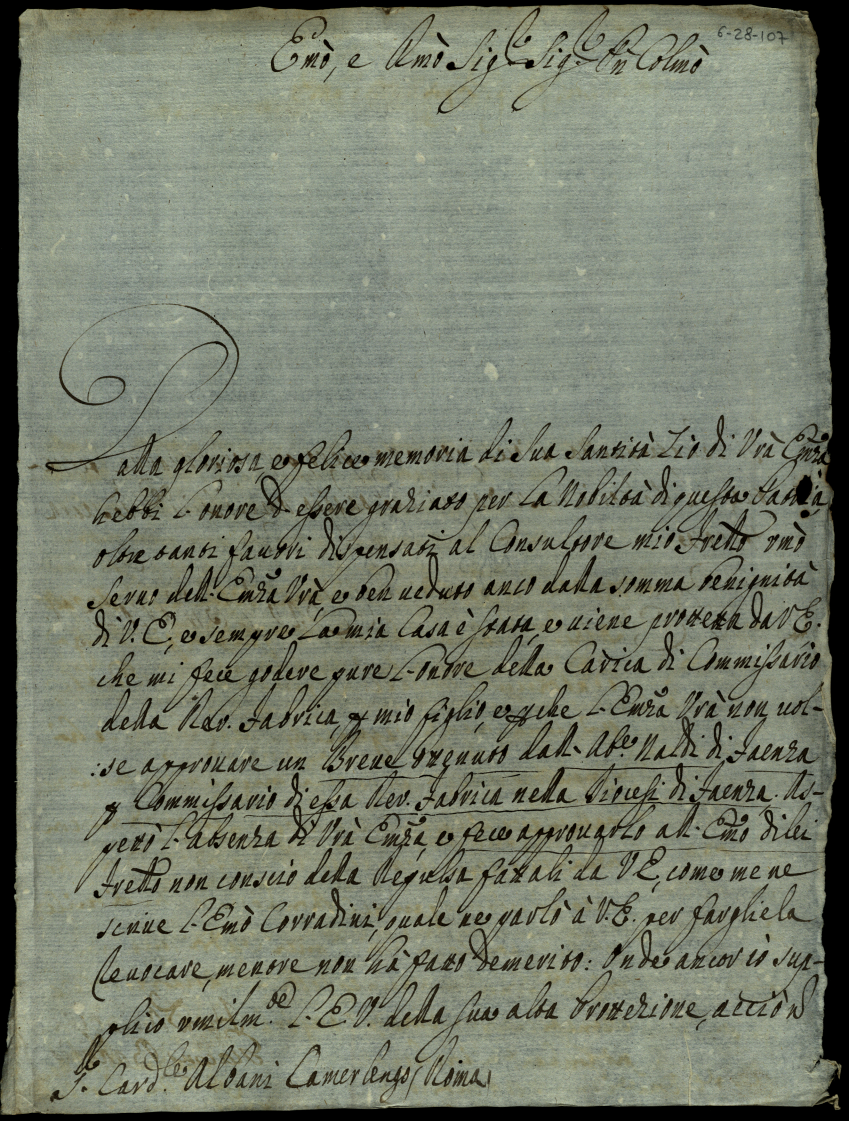 6-28-107
Emõ, e Rmõ Sig.r Sig.r Pñ Colmõ
Dalla gloriosa e felice memoria di Sua Santità Zio di Vrã Emza
hebbi l'onore d'essere graziato per la Nobiltà di questa Patria,
oltre tanti favori dispensati al Consultore mio Frello vmõ
servo dell'Emza Vrã, e ben veduto anco dalla somma benignità
di V. E., e sempre la mia Casa è stata, e viene protetta da V E.
che mi fece godere pure l'onore della Carica di Commissario
della Rev. Fabrica, p mio figlio, e p che l'Emza Vrã non vol-
:se approvare un Breve ottenuto dall'Abe. Naldi di Faenza
p Commissario di essa Rev. Fabrica nella Diocesi di Faenza. As-
pettò l'absenza di Vrã Emza, e fece approvarlo all'Emõ di lei
Frello non conscio della Repulsa fattali da V E, come me ne
scrive l'Emõ Corradini, quale ne parlò à V. E. per fargliela
revocare, mentre non hà fatto demerito: Onde ancor iò sup-
plico vmilm.te l'E. V. della sua alta Protezione, acciò n
S.r Card.le Albani Camerlengo (Roma)